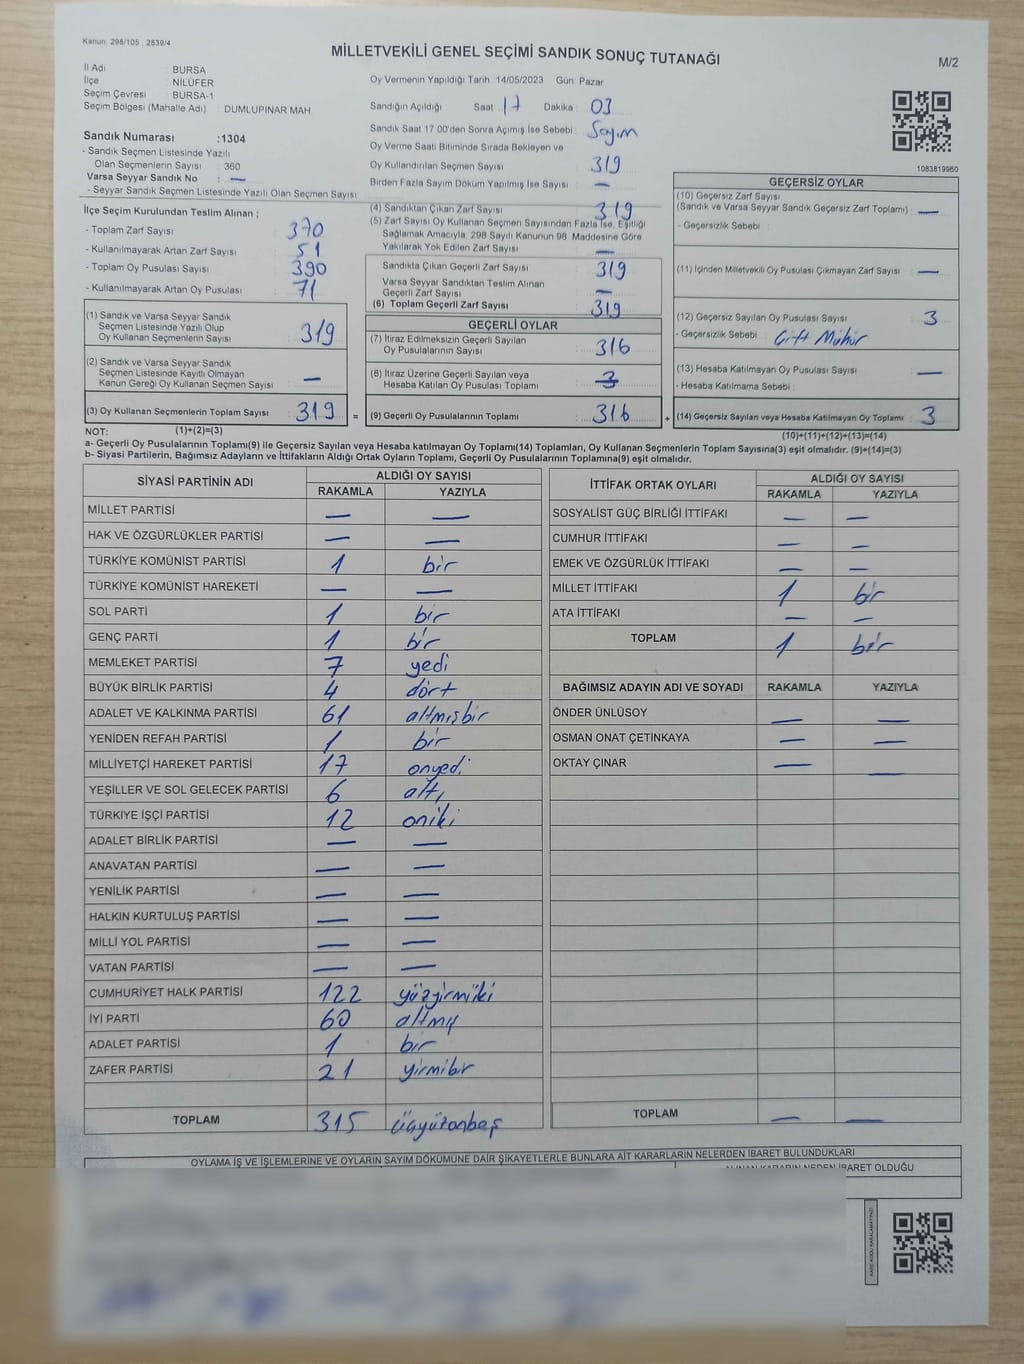 Kanun: 298/105 , 2839/4
MİLLETVEKİLİ GENEL SEÇİMİ SANDIK SONUÇ TUTANAĞI
M/2
İl Adı : BURSA
İlçe : NİLÜFER
Seçim Çevresi : BURSA-1
Seçim Bölgesi (Mahalle Adı) : DUMLUPINAR MAH
Oy Vermenin Yapıldığı Tarih :14/05/2023 Gün: Pazar
Sandığın Açıldığı Saat : 17 Dakika : 03
Sandık Saat 17:00'den Sonra Açımış İse Sebebi : Sayım
Oy Verme Saati Bitiminde Sırada Bekleyen ve
Oy Kullandırılan Seçmen Sayısı : 319
Birden Fazla Sayım Döküm Yapılmış İse Sayısı : —
1083819960
Sandık Numarası :1304
- Sandık Seçmen Listesinde Yazılı
Olan Seçmenlerin Sayısı : 360
Varsa Seyyar Sandık No : —
- Seyyar Sandık Seçmen Listesinde Yazılı Olan Seçmen Sayısı
İlçe Seçim Kurulundan Teslim Alınan ;
- Toplam Zarf Sayısı : 370
- Kullanılmayarak Artan Zarf Sayısı : 51
- Toplam Oy Pusulası Sayısı : 390
- Kullanılmayarak Artan Oy Pusulası : 71
(1) Sandık ve Varsa Seyyar Sandık
Seçmen Listesinde Yazılı Olup
Oy Kullanan Seçmenlerin Sayısı : 319
(2) Sandık ve Varsa Seyyar Sandık
Seçmen Listesinde Kayıtlı Olmayan
Kanun Gereği Oy Kullanan Seçmen Sayısı : —
(3) Oy Kullanan Seçmenlerin Toplam Sayısı : 319 =
(1)+(2)=(3)
(4) Sandıktan Çıkan Zarf Sayısı : 319
(5) Zarf Sayısı Oy Kullanan Seçmen Sayısından Fazla İse, Eşitliği
Sağlamak Amacıyla, 298 Sayılı Kanunun 98. Maddesine Göre
Yakılarak Yok Edilen Zarf Sayısı : —
Sandıkta Çıkan Geçerli Zarf Sayısı : 319
Varsa Seyyar Sandıktan Teslim Alınan
Geçerli Zarf Sayısı : —
(6) Toplam Geçerli Zarf Sayısı : 319
GEÇERLİ OYLAR
(7) İtiraz Edilmeksizin Geçerli Sayılan
Oy Pusulalarının Sayısı : 316
(8) İtiraz Üzerine Geçerli Sayılan veya
Hesaba Katılan Oy Pusulası Toplamı : 3
(9) Geçerli Oy Pusulalarının Toplamı : 316 +
GEÇERSİZ OYLAR
(10) Geçersiz Zarf Sayısı
(Sandık ve Varsa Seyyar Sandık Geçersiz Zarf Toplamı) : —
- Geçersizlik Sebebi :
(11) İçinden Milletvekili Oy Pusulası Çıkmayan Zarf Sayısı : —
(12) Geçersiz Sayılan Oy Pusulası Sayısı : 3
- Geçersizlik Sebebi : Çift Mühür
(13) Hesaba Katılmayan Oy Pusulası Sayısı : —
- Hesaba Katılmama Sebebi :
(14) Geçersiz Sayılan veya Hesaba Katılmayan Oy Toplamı : 3
(10)+(11)+(12)+(13)=(14)
NOT:
a- Geçerli Oy Pusulalarının Toplamı(9) ile Geçersiz Sayılan veya Hesaba katılmayan Oy Toplamı(14) Toplamları, Oy Kullanan Seçmenlerin Toplam Sayısına(3) eşit olmalıdır. (9)+(14)=(3)
b- Siyasi Partilerin, Bağımsız Adayların ve İttifakların Aldığı Ortak Oyların Toplamı, Geçerli Oy Pusulalarının Toplamına(9) eşit olmalıdır.
SİYASİ PARTİNİN ADI ALDIĞI OY SAYISI
RAKAMLA YAZIYLA
MİLLET PARTİSİ — —
HAK VE ÖZGÜRLÜKLER PARTİSİ — —
TÜRKİYE KOMÜNİST PARTİSİ 1 bir
TÜRKİYE KOMÜNİST HAREKETİ — —
SOL PARTİ 1 bir
GENÇ PARTİ 1 bir
MEMLEKET PARTİSİ 7 yedi
BÜYÜK BİRLİK PARTİSİ 4 dört
ADALET VE KALKINMA PARTİSİ 61 altmışbir
YENİDEN REFAH PARTİSİ 1 bir
MİLLİYETÇİ HAREKET PARTİSİ 17 onyedi
YEŞİLLER VE SOL GELECEK PARTİSİ 6 altı
TÜRKİYE İŞÇİ PARTİSİ 12 oniki
ADALET BİRLİK PARTİSİ — —
ANAVATAN PARTİSİ — —
YENİLİK PARTİSİ — —
HALKIN KURTULUŞ PARTİSİ — —
MİLLİ YOL PARTİSİ — —
VATAN PARTİSİ — —
CUMHURİYET HALK PARTİSİ 122 yüzyirmiiki
İYİ PARTİ 60 altmış
ADALET PARTİSİ 1 bir
ZAFER PARTİSİ 21 yirmibir
TOPLAM 315 üçyüzonbeş
İTTİFAK ORTAK OYLARI ALDIĞI OY SAYISI
RAKAMLA YAZIYLA
SOSYALİST GÜÇ BİRLİĞİ İTTİFAKI — —
CUMHUR İTTİFAKI — —
EMEK VE ÖZGÜRLÜK İTTİFAKI — —
MİLLET İTTİFAKI 1 bir
ATA İTTİFAKI — —
TOPLAM 1 bir
BAĞIMSIZ ADAYIN ADI VE SOYADI RAKAMLA YAZIYLA
ÖNDER ÜNLÜSOY — —
OSMAN ONAT ÇETİNKAYA — —
OKTAY ÇINAR — —
TOPLAM — —
OYLAMA İŞ VE İŞLEMLERİNE VE OYLARIN SAYIM DÖKÜMÜNE DAİR ŞİKAYETLERLE BUNLARA AİT KARARLARIN NELERDEN İBARET BULUNDUKLARI
ALINAN KARARIN NEDEN İBARET OLDUĞU
KARE KODU KARALAMAYINIZ!